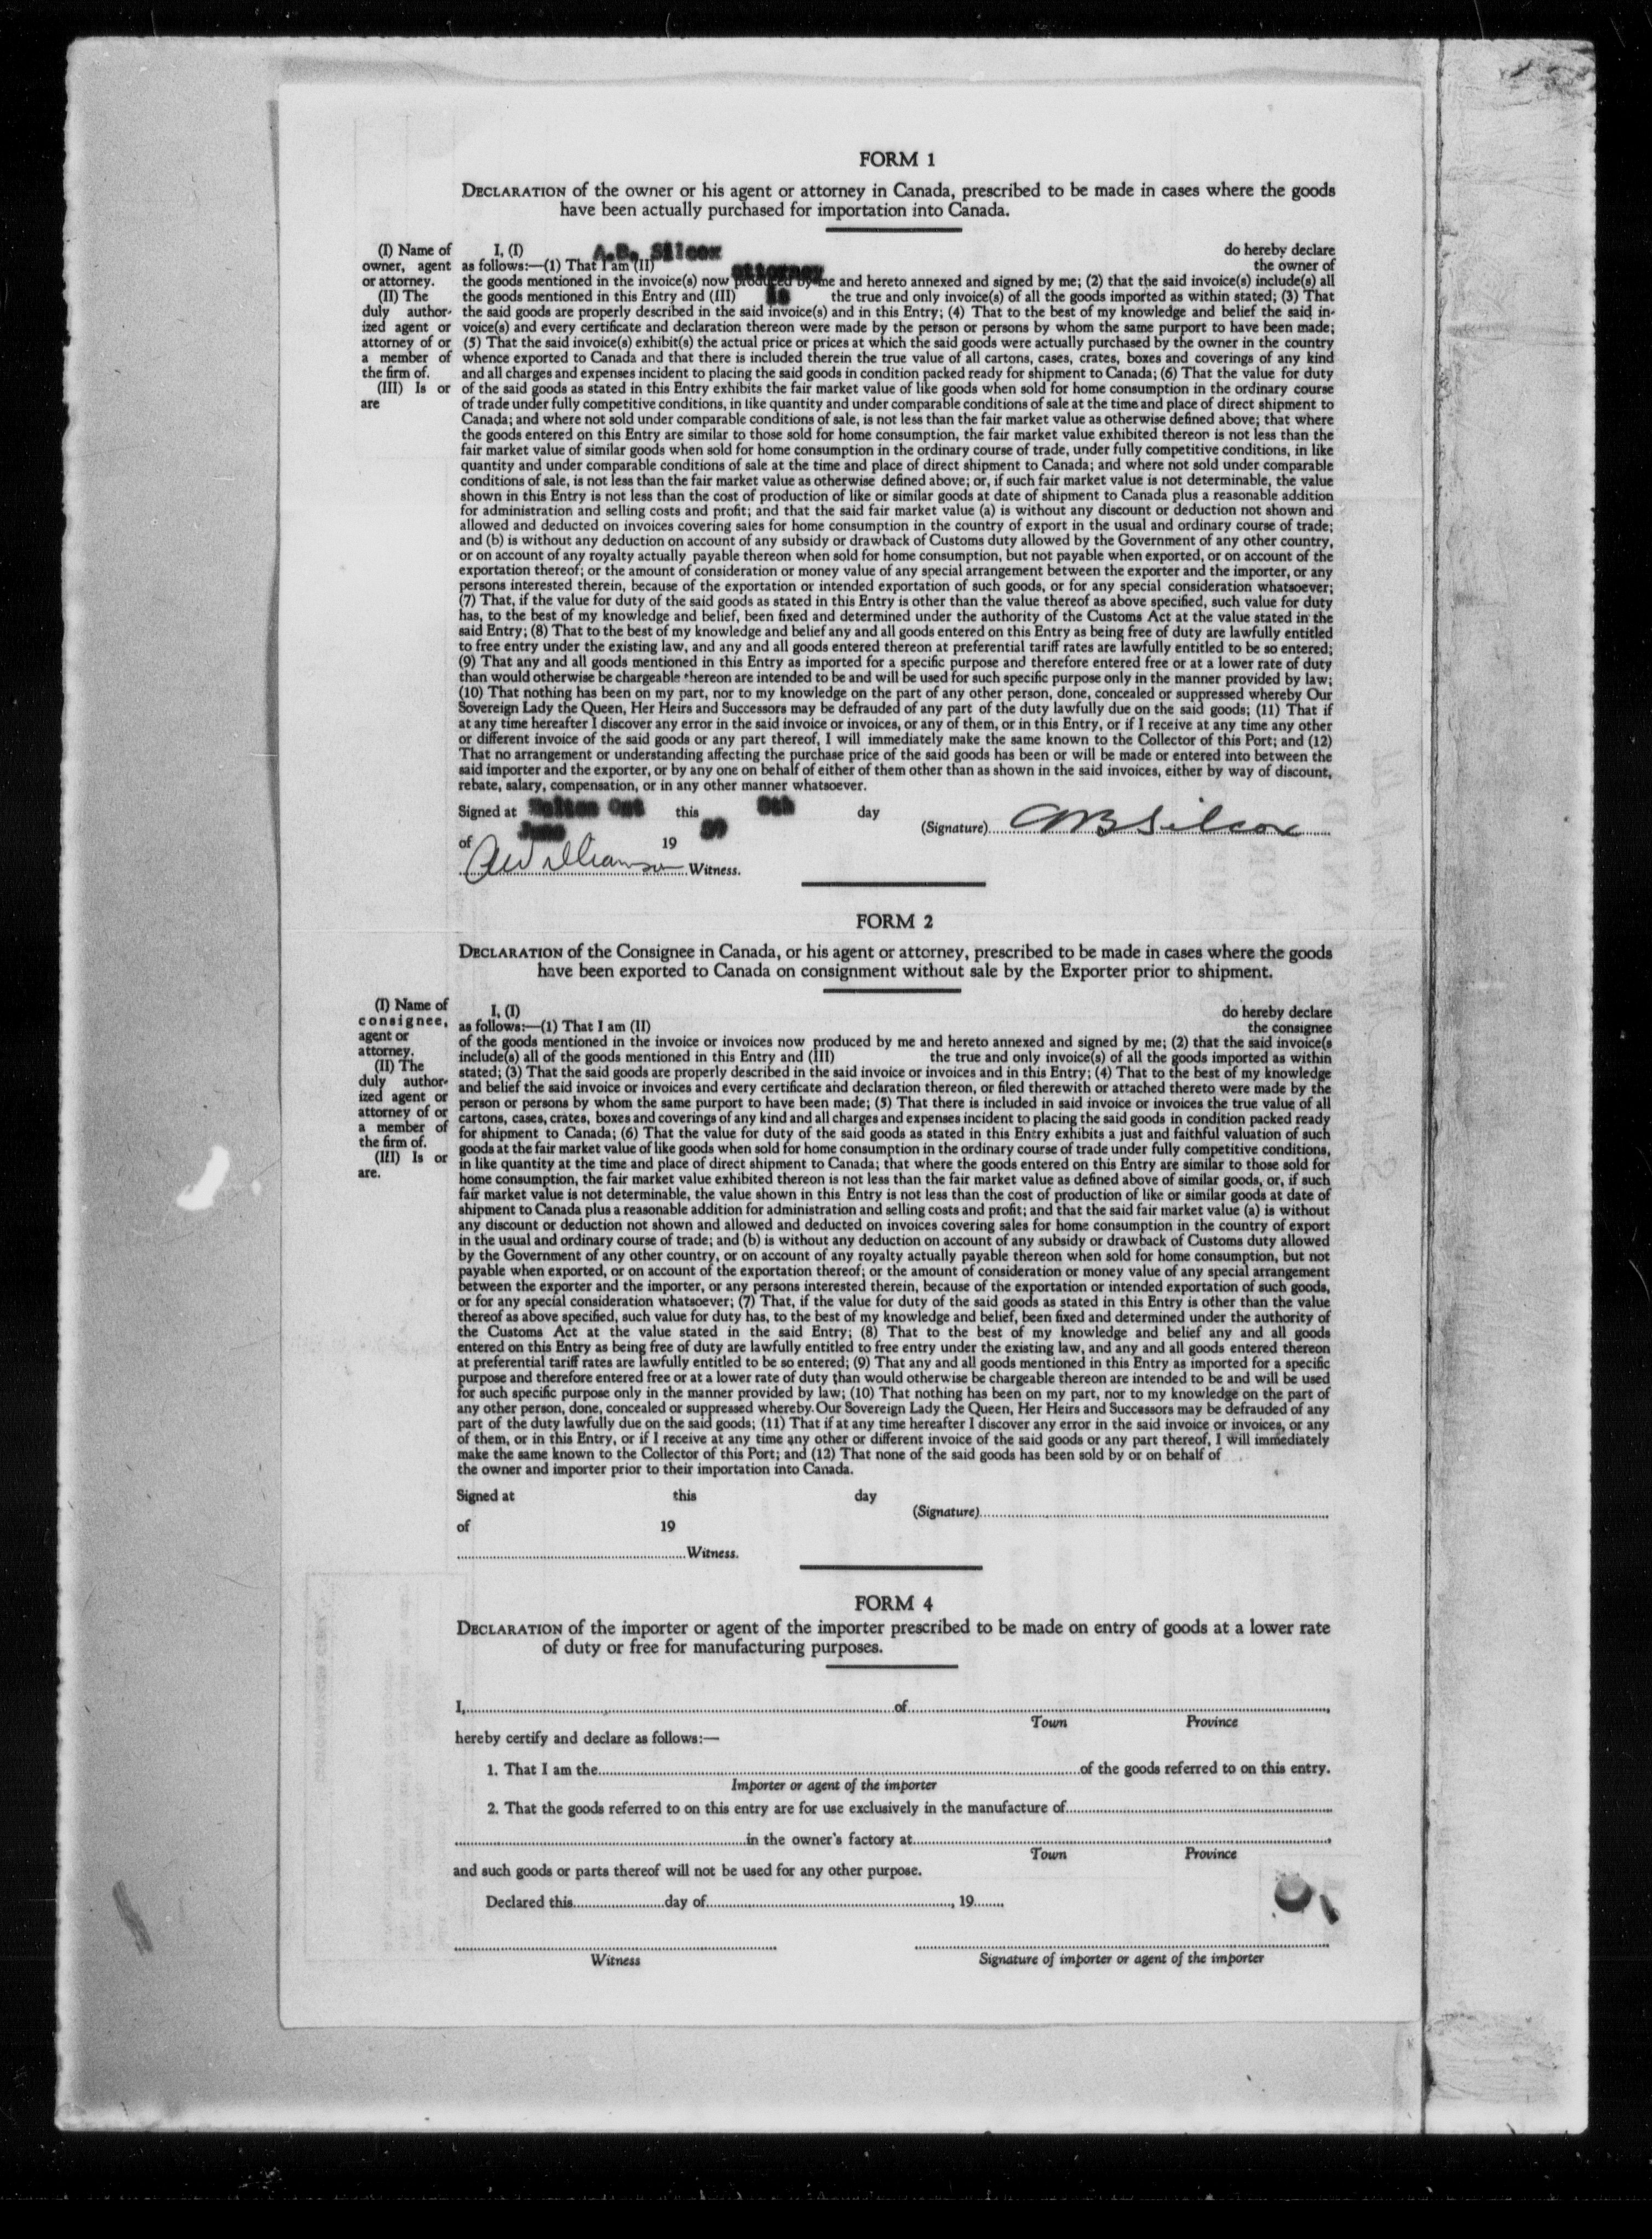 FORM 1
DECLARATION of the owner or his agent or attorney in Canada, prescribed to be made in cases where the goods
have been actually purchased for importation into Canada.
(I) Name of
owner, agent
or attorney.
(II) The
duly author-
ized agent or
attorney of or
a member of
the firm of.
(III) Is or
are
I, (I) A.B. Silcox do hereby declare
as follows:—(1) That I am (II) attorney the owner of
the goods mentioned in the invoice(s) now produced by me and hereto annexed and signed by me; (2) that the said invoice(s) include(s) all
the goods mentioned in this Entry and (III) is the true and only invoice(s) of all the goods imported as within stated; (3) That
the said goods are properly described in the said invoice(s) and in this Entry; (4) That to the best of my knowledge and belief the said in-
voice(s) and every certificate and declaration thereon were made by the person or persons by whom the same purport to have been made;
(5) That the said invoice(s) exhibit(s) the actual price or prices at which the said goods were actually purchased by the owner in the country
whence exported to Canada and that there is included therein the true value of all cartons, cases, crates, boxes and coverings of any kind
and all charges and expenses incident to placing the said goods in condition packed ready for shipment to Canada; (6) That the value for duty
of the said goods as stated in this Entry exhibits the fair market value of like goods when sold for home consumption in the ordinary course
of trade under fully competitive conditions, in like quantity and under comparable conditions of sale at the time and place of direct shipment to
Canada; and where not sold under comparable conditions of sale, is not less than the fair market value as otherwise defined above; that where
the goods entered on this Entry are similar to those sold for home consumption, the fair market value exhibited thereon is not less than the
fair market value of similar goods when sold for home consumption in the ordinary course of trade, under fully competitive conditions, in like
quantity and under comparable conditions of sale at the time and place of direct shipment to Canada; and where not sold under comparable
conditions of sale, is not less than the fair market value as otherwise defined above; or, if such fair market value is not determinable, the value
shown in this Entry is not less than the cost of production of like or similar goods at date of shipment to Canada plus a reasonable addition
for administration and selling costs and profit; and that the said fair market value (a) is without any discount or deduction not shown and
allowed and deducted on invoices covering sales for home consumption in the country of export in the usual and ordinary course of trade;
and (b) is without any deduction on account of any subsidy or drawback of Customs duty allowed by the Government of any other country,
or on account of any royalty actually payable thereon when sold for home consumption, but not payable when exported, or on account of the
exportation thereof; or the amount of consideration or money value of any special arrangement between the exporter and the importer, or any
persons interested therein, because of the exportation or intended exportation of such goods, or for any special consideration whatsoever;
(7) That, if the value for duty of the said goods as stated in this Entry is other than the value thereof as above specified, such value for duty
has, to the best of my knowledge and belief, been fixed and determined under the authority of the Customs Act at the value stated in the
said Entry; (8) That to the best of my knowledge and belief any and all goods entered on this Entry as being free of duty are lawfully entitled
to free entry under the existing law, and any and all goods entered thereon at preferential tariff rates are lawfully entitled to be so entered;
(9) That any and all goods mentioned in this Entry as imported for a specific purpose and therefore entered free or at a lower rate of duty
than would otherwise be chargeable thereon are intended to be and will be used for such specific purpose only in the manner provided by law;
(10) That nothing has been on my part, nor to my knowledge on the part of any other person, done, concealed or suppressed whereby Our
Sovereign Lady the Queen, Her Heirs and Successors may be defrauded of any part of the duty lawfully due on the said goods; (11) That if
at any time hereafter I discover any error in the said invoice or invoices, or any of them, or in this Entry, or if I receive at any time any other
or different invoice of the said goods or any part thereof, I will immediately make the same known to the Collector of this Port; and (12)
That no arrangement or understanding affecting the purchase price of the said goods has been or will be made or entered into between the
said importer and the exporter, or by any one on behalf of either of them other than as shown in the said invoices, either by way of discount,
rebate, salary, compensation, or in any other manner whatsoever.
Signed at Malton Ont this 8th day
(Signature) AB Silcox
of June 19 59
A Williamson Witness.
FORM 2
DECLARATION of the Consignee in Canada, or his agent or attorney, prescribed to be made in cases where the goods
have been exported to Canada on consignment without sale by the Exporter prior to shipment.
(I) Name of
consignee,
agent or
attorney.
(II) The
duly author-
ized agent or
attorney of or
a member of
the firm of.
(III) Is or
are.
I, (I) do hereby declare
as follows:—(1) That I am (II) the consignee
of the goods mentioned in the invoice or invoices now produced by me and hereto annexed and signed by me; (2) that the said invoice(s
include(s) all of the goods mentioned in this Entry and (III) the true and only invoice(s) of all the goods imported as within
stated; (3) That the said goods are properly described in the said invoice or invoices and in this Entry; (4) That to the best of my knowledge
and belief the said invoice or invoices and every certificate and declaration thereon, or filed therewith or attached thereto were made by the
person or persons by whom the same purport to have been made; (5) That there is included in said invoice or invoices the true value of all
cartons, cases, crates, boxes and coverings of any kind and all charges and expenses incident to placing the said goods in condition packed ready
for shipment to Canada; (6) That the value for duty of the said goods as stated in this Entry exhibits a just and faithful valuation of such
goods at the fair market value of like goods when sold for home consumption in the ordinary course of trade under fully competitive conditions,
in like quantity at the time and place of direct shipment to Canada; that where the goods entered on this Entry are similar to those sold for
home consumption, the fair market value exhibited thereon is not less than the fair market value as defined above of similar goods, or, if such
fair market value is not determinable, the value shown in this Entry is not less than the cost of production of like or similar goods at date of
shipment to Canada plus a reasonable addition for administration and selling costs and profit; and that the said fair market value (a) is without
any discount or deduction not shown and allowed and deducted on invoices covering sales for home consumption in the country of export
in the usual and ordinary course of trade; and (b) is without any deduction on account of any subsidy or drawback of Customs duty allowed
by the Government of any other country, or on account of any royalty actually payable thereon when sold for home consumption, but not
payable when exported, or on account of the exportation thereof; or the amount of consideration or money value of any special arrangement
between the exporter and the importer, or any persons interested therein, because of the exportation or intended exportation of such goods,
or for any special consideration whatsoever; (7) That, if the value for duty of the said goods as stated in this Entry is other than the value
thereof as above specified, such value for duty has, to the best of my knowledge and belief, been fixed and determined under the authority of
the Customs Act at the value stated in the said Entry; (8) That to the best of my knowledge and belief any and all goods
entered on this Entry as being free of duty are lawfully entitled to free entry under the existing law, and any and all goods entered thereon
at preferential tariff rates are lawfully entitled to be so entered; (9) That any and all goods mentioned in this Entry as imported for a specific
purpose and therefore entered free or at a lower rate of duty than would otherwise be chargeable thereon are intended to be and will be used
for such specific purpose only in the manner provided by law; (10) That nothing has been on my part, nor to my knowledge on the part of
any other person, done, concealed or suppressed whereby Our Sovereign Lady the Queen, Her Heirs and Successors may be defrauded of any
part of the duty lawfully due on the said goods; (11) That if at any time hereafter I discover any error in the said invoice or invoices, or any
of them, or in this Entry, or if I receive at any time any other or different invoice of the said goods or any part thereof, I will immediately
make the same known to the Collector of this Port; and (12) That none of the said goods has been sold by or on behalf of
the owner and importer prior to their importation into Canada.
Signed at this day
(Signature)
of 19
Witness.
FORM 4
DECLARATION of the importer or agent of the importer prescribed to be made on entry of goods at a lower rate
of duty or free for manufacturing purposes.
I, of ,
Town Province
hereby certify and declare as follows:—
1. That I am the of the goods referred to on this entry.
Importer or agent of the importer
2. That the goods referred to on this entry are for use exclusively in the manufacture of
in the owner's factory at ,
Town Province
and such goods or parts thereof will not be used for any other purpose.
Declared this day of , 19
Witness Signature of importer or agent of the importer